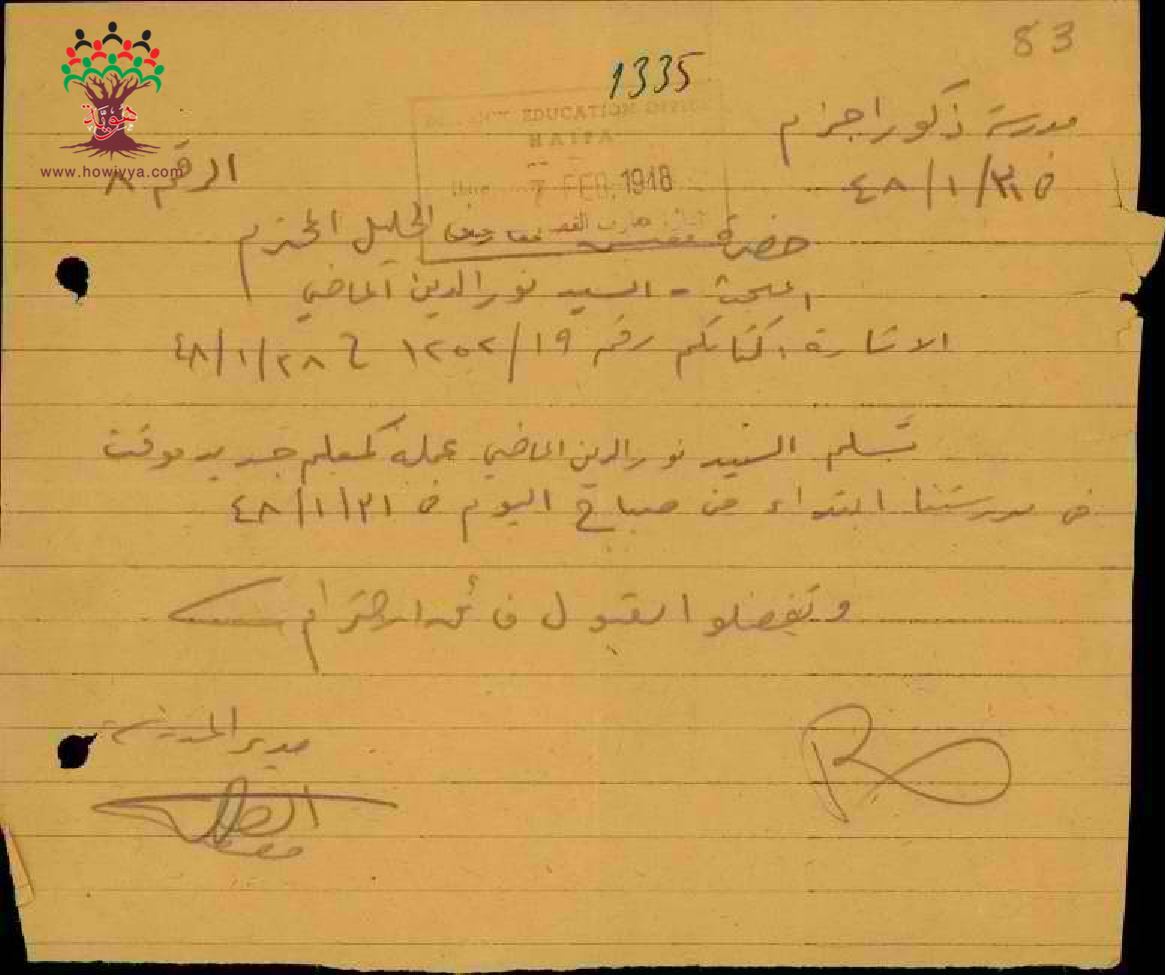 83
1335
مدرسة ذكور اجزم
DISTRICT EDUCATION OFFICE
HAIFA
في ٣١/١/٤٨
7 FEB. 1948
الرقم ٨
هوية
www.howiyya.com
حضرة مفتش معارف الجليل المحترم
المبحث - السيد نور الدين الماضي
الاشارة: كتابكم رقم ١٢٥٢/١٩ ٢٨/١/٤٨
تسلم السيد نور الدين الماضي عمله كمعلم جديد موقت
في مدرستنا ابتداء من صباح اليوم في ٣١/١/٤٨
وتفضلوا بقبول فائق الاحترام
مدير المدرسة